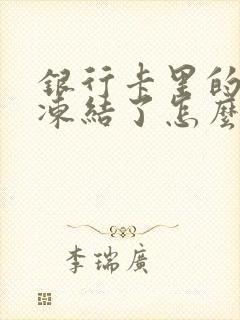 銀行卡里的
凍結了怎麼
李瑞廣